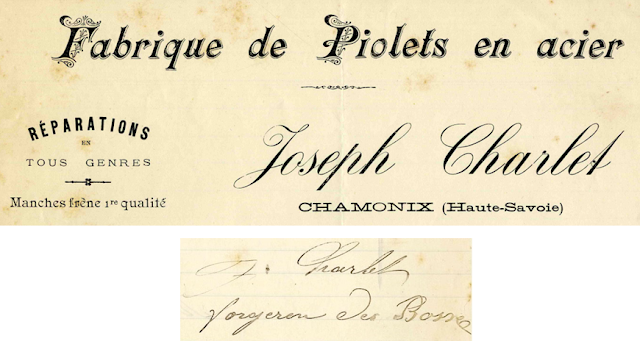 Fabrique de Piolets en acier
RÉPARATIONS
EN
TOUS GENRES
Manches frêne 1re qualité
Joseph Charlet
CHAMONIX (Haute-Savoie)
J. Charlet
forgeron des Bosses